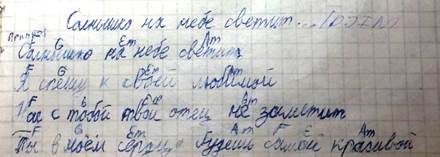 Солнышко на небе светит...
Припев:
F G Em Am
Солнышко на небе светит
F G Em Am
Я спешу к своей любимой
F G Em Am
Нас с тобой твой отец не заметит
F G Em Am F E Am
Ты в моём сердце будешь самой красивой